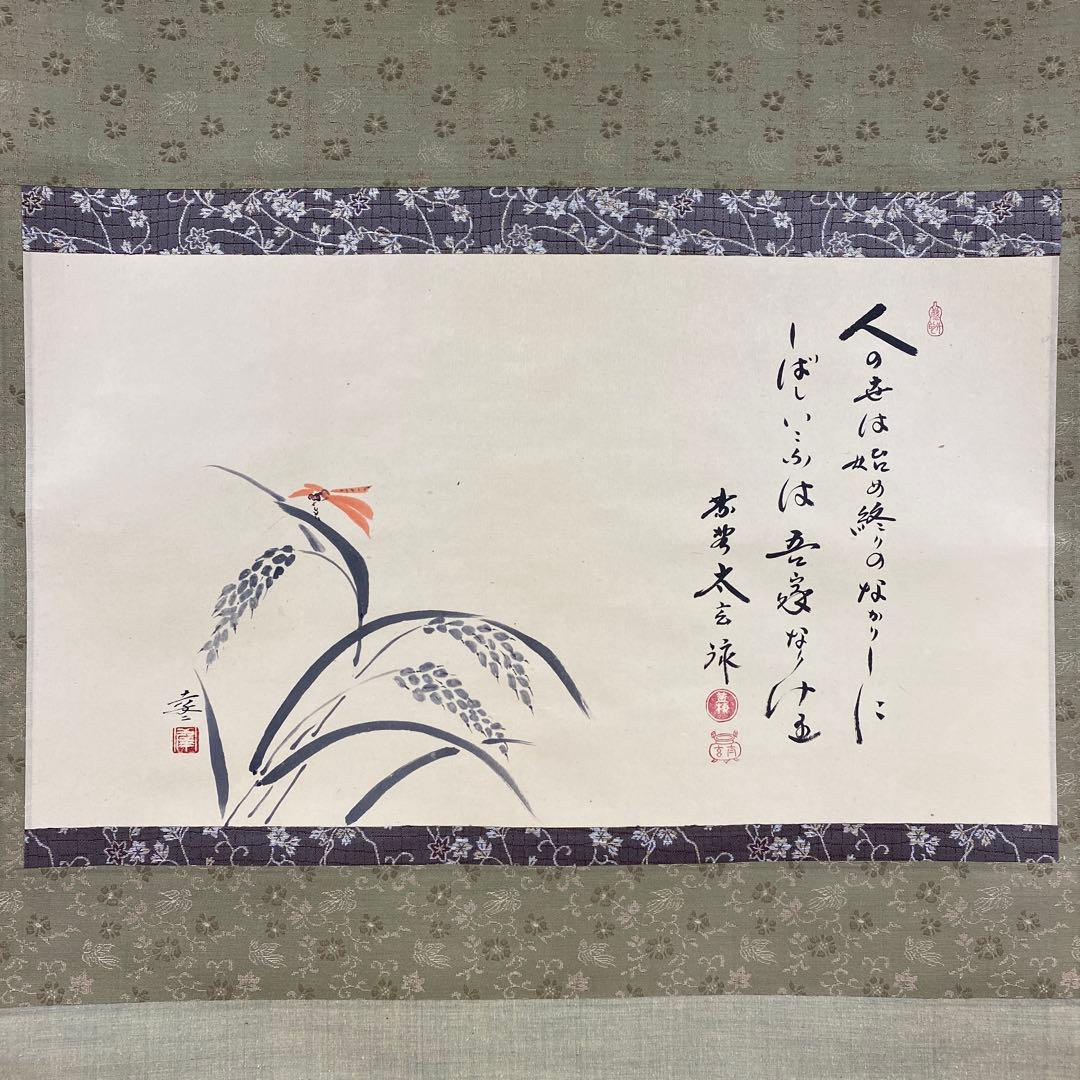 人の世は始め終りのなかりしに
しばしいこふは吾家なりけ里
紫野太玄